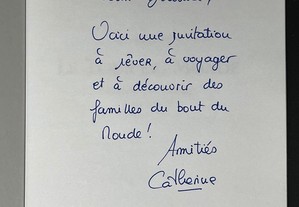 Voici une invitation
à rêver, à voyager
et à découvrir des
familles du bout du
Monde !
Amitiés
Catherine